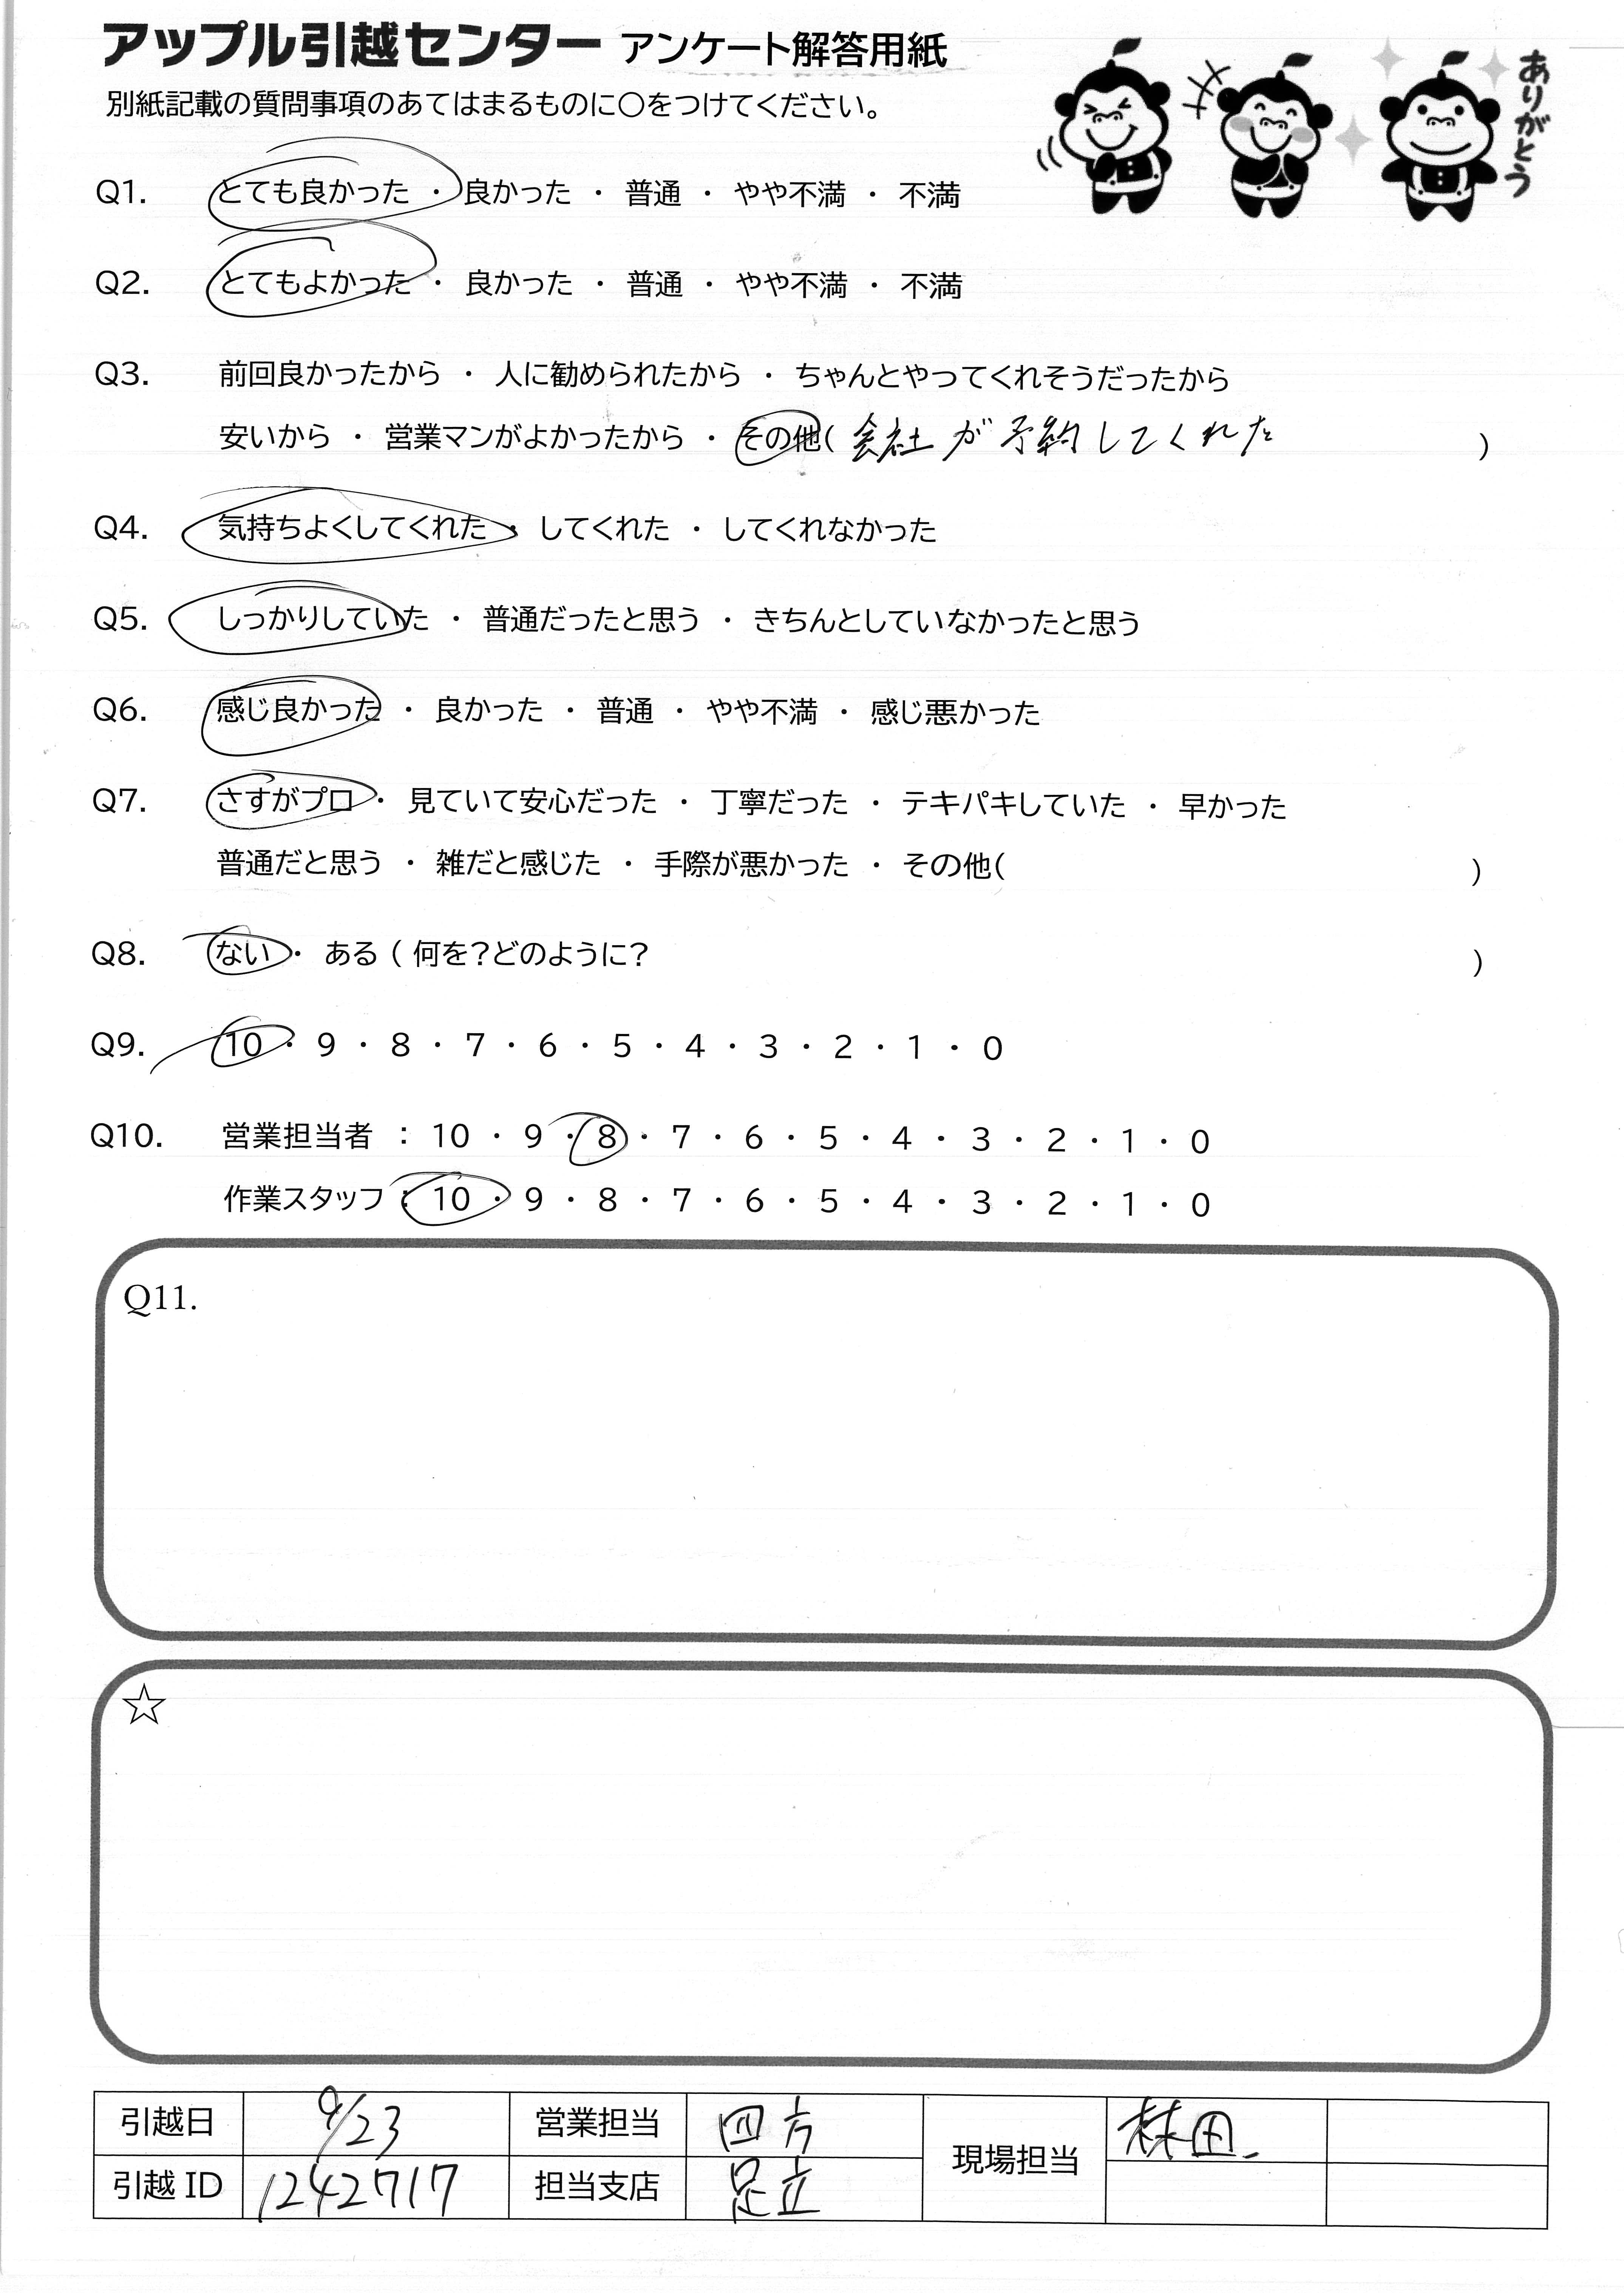 アップル引越センター アンケート解答用紙
ありがとう
別紙記載の質問事項のあてはまるものに〇をつけてください。
Q1. とても良かった ・ 良かった ・ 普通 ・ やや不満 ・ 不満
Q2. とてもよかった ・ 良かった ・ 普通 ・ やや不満 ・ 不満
Q3. 前回良かったから ・ 人に勧められたから ・ ちゃんとやってくれそうだったから
安いから ・ 営業マンがよかったから ・ その他( 会社が予約してくれた )
Q4. 気持ちよくしてくれた ・ してくれた ・ してくれなかった
Q5. しっかりしていた ・ 普通だったと思う ・ きちんとしていなかったと思う
Q6. 感じ良かった ・ 良かった ・ 普通 ・ やや不満 ・ 感じ悪かった
Q7. さすがプロ ・ 見ていて安心だった ・ 丁寧だった ・ テキパキしていた ・ 早かった
普通だと思う ・ 雑だと感じた ・ 手際が悪かった ・ その他( )
Q8. ない ・ ある ( 何を?どのように? )
Q9. 10 ・ 9 ・ 8 ・ 7 ・ 6 ・ 5 ・ 4 ・ 3 ・ 2 ・ 1 ・ 0
Q10. 営業担当者 : 10 ・ 9 ・ 8 ・ 7 ・ 6 ・ 5 ・ 4 ・ 3 ・ 2 ・ 1 ・ 0
作業スタッフ : 10 ・ 9 ・ 8 ・ 7 ・ 6 ・ 5 ・ 4 ・ 3 ・ 2 ・ 1 ・ 0
Q11.
☆
引越日 9/23 営業担当 四方 現場担当 林田
引越 ID 1242717 担当支店 足立